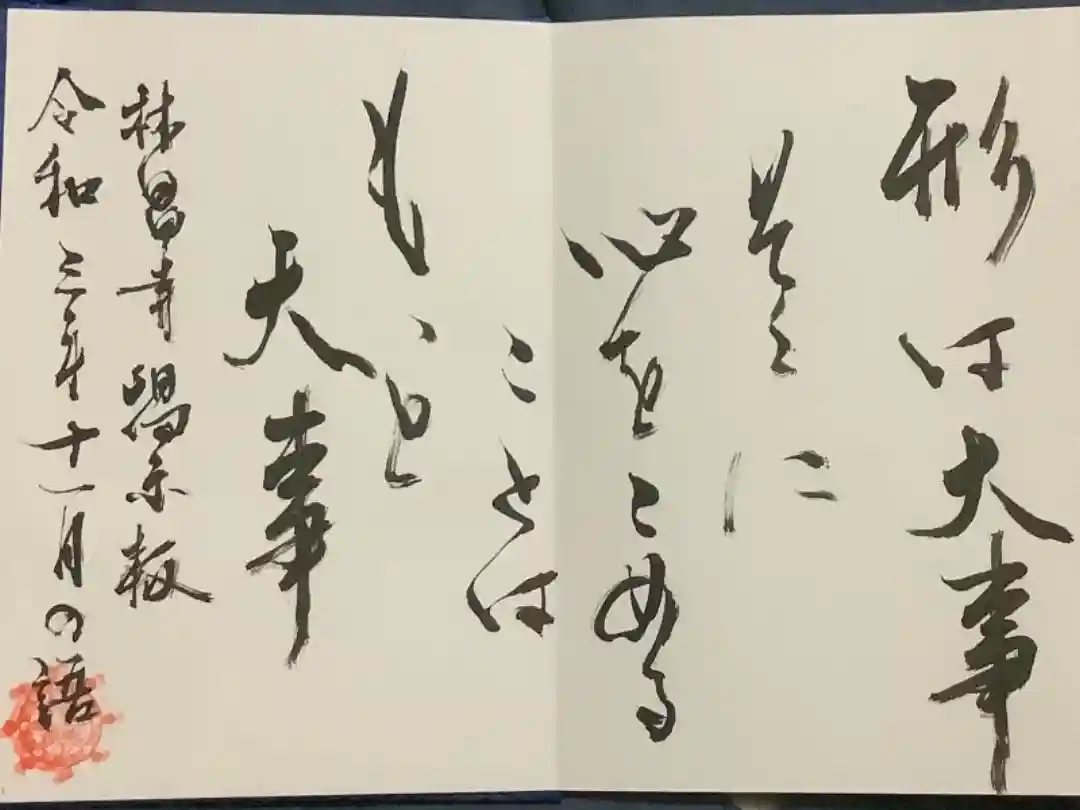 形は大事
そこに
心をこめる
ことは
もっと
大事
林昌寺掲示板
令和三年十一月の語